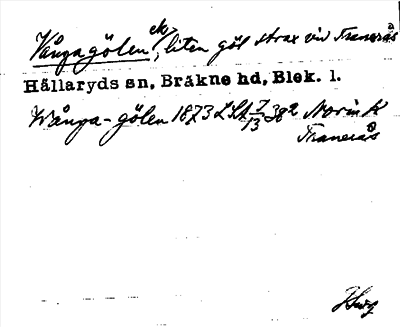 Vångagölen ek, liten göl strax vid Tranerås
Hällaryds sn, Bräkne hd, Blek. l.
Wånga-gölen 1873 LSA 7/13 382 Norin K
Tranerås